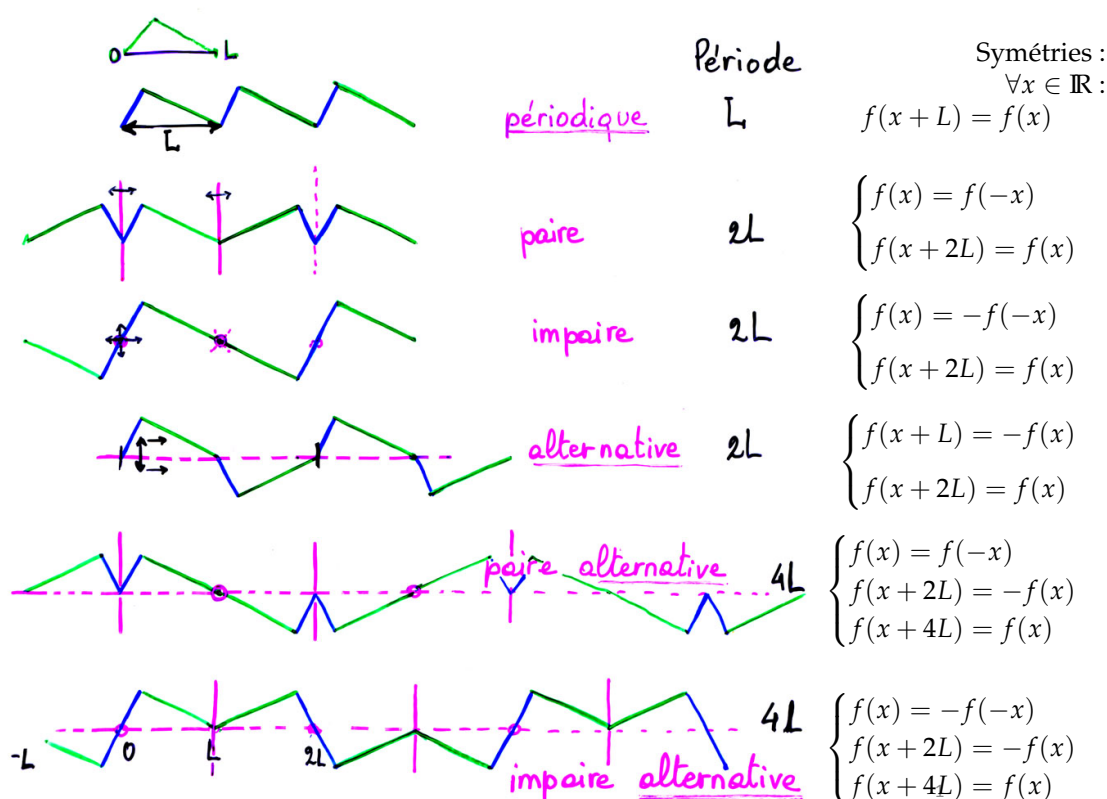 O L
Période
Symétries :
∀x ∈ ℝ :
L
périodique L f(x + L) = f(x)
paire 2L
f(x) = f(−x)
f(x + 2L) = f(x)
impaire 2L
f(x) = −f(−x)
f(x + 2L) = f(x)
alternative 2L
f(x + L) = −f(x)
f(x + 2L) = f(x)
paire alternative 4L
f(x) = f(−x)
f(x + 2L) = −f(x)
f(x + 4L) = f(x)
-L 0 L 2L
impaire alternative 4L
f(x) = −f(−x)
f(x + 2L) = −f(x)
f(x + 4L) = f(x)